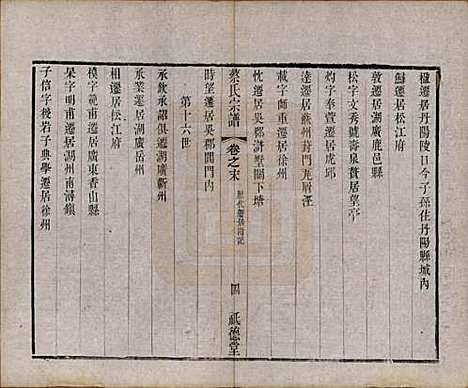 楹遷居丹陽陵口今子孫住丹陽縣城內
鰣遷居松江府
敦遷居湖廣鹿邑縣
松字文秀號壽泉贅居望亭
灼字奉萱遷居虎邱
逵遷居蘇州葑門瓦屑涇
載字師重遷居徐州
忱遷居吳郡滸墅關下塘
時望遷居吳郡閶門內
蔡氏宗譜
卷之末
歷代遷居附記
四
祇德堂
第十六世
承欽承詔俱遷湖廣蘄州
承業遷居湖廣岳州
相遷居松江府
模字範甫遷居廣東香山縣
杲字明甫遷居湖州南潯鎮
子信字授岩子典學遷居徐州